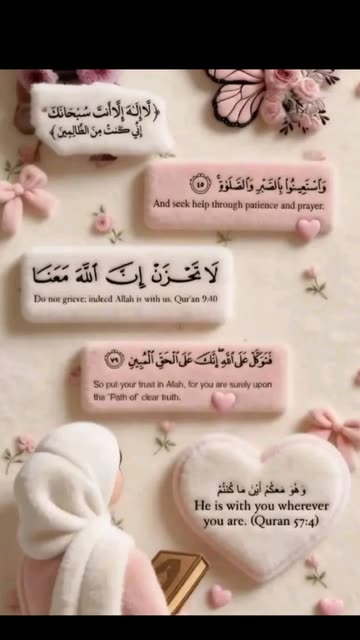 ﴿لَّا إِلَٰهَ إِلَّا أَنتَ سُبْحَانَكَ
إِنِّي كُنتُ مِنَ الظَّالِمِينَ﴾
وَاسْتَعِينُوا بِالصَّبْرِ وَالصَّلَوٰةِ ۚ ٤٥
And seek help through patience and prayer,
لَا تَحْزَنْ إِنَّ ٱللَّهَ مَعَنَا
Do not grieve; indeed Allah is with us. Qur'an 9:40
فَتَوَكَّلْ عَلَى اللَّهِ ۖ إِنَّكَ عَلَى الْحَقِّ الْمُبِينِ ٧٩
So put your trust in Allah, for you are surely upon
the 'Path of' clear truth.
وَهُوَ مَعَكُمْ أَيْنَ مَا كُنتُمْ
He is with you wherever
you are. (Quran 57:4)